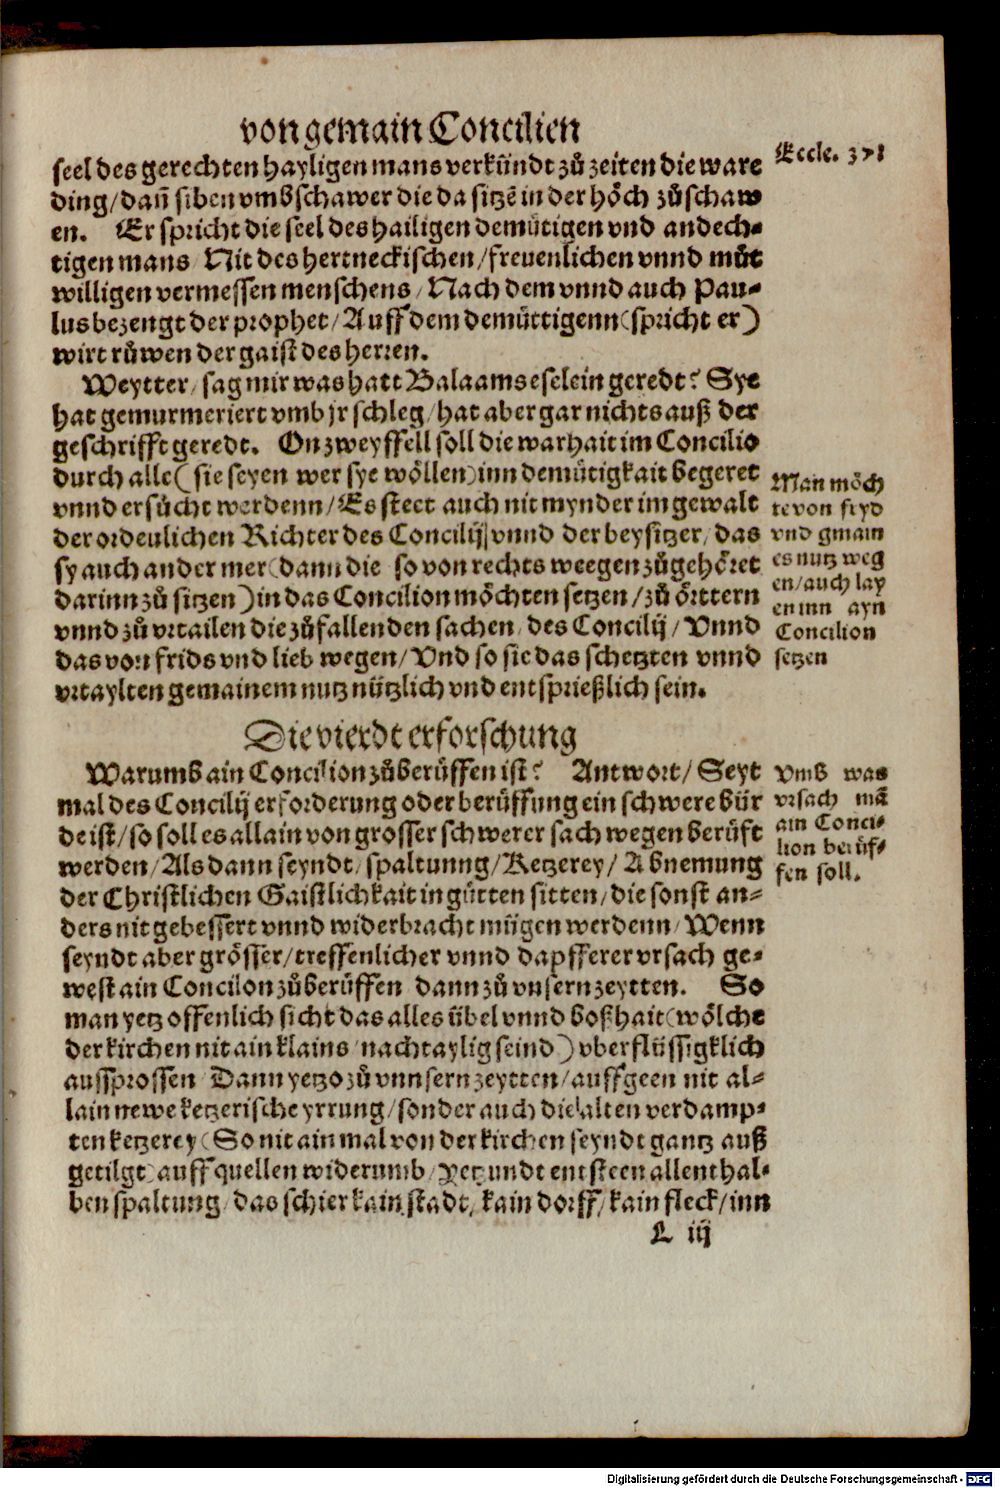 von gemain Concilien
seel des gerechten hayligen mans verkündt zů zeiten die ware
ding/dañ siben vmbschawer die da sitzē in der höch zůschaw
en. Er spricht die seel des hailigen demütigen vnd andech-
tigen mans/Nit des hertneckischen/freuenlichen vnnd můt
willigen vermessen menschens/Nach dem vnnd auch Pau-
lus bezengt der prophet/Auff dem demüttigenn (spricht er)
wirt růwen der gaist des herren.
Weytter/sag mir was hatt Balaams eselein geredt? Sye
hat gemurmeriert vmb jr schleg/hat aber gar nichts auß der
geschrifft geredt. On zweyffell soll die warhait im Concilio
durch alle (sie seyen wer sye wöllen) inn demütigkait begeret
vnnd ersücht werdenn/Es steet auch nit mynder im gewalt
der ordenlichen Richter des Concilij/vnnd der beysitzer/das
sy auch ander mer (dann die so von rechts weegen zůgehöret
darinn zů sitzen) in das Concilion möchten setzen/zů örttern
vnnd zů vrtailen die zůfallenden sachen/des Concilij/Vnnd
das von frids vnd lieb wegen/Vnd so sie das schetzten vnnd
vrtaylten gemainem nutz nützlich vnd entsprießlich sein.
Eccle. 37
Man möch
te von fryd
vnd gmain
es nutz weg
en/auch lay
en inn ayn
Concilion
setzen
Die vierdt erforschung
Warumb ain Concilion zůberüffen ist? Antwort/Seyt
mal des Concilij erforderung oder berüffung ein schwere bür
de ist/so soll es allain von grosser schwerer sach wegen berüft
werden/Als dann seyndt/spaltunng/Ketzerey/Abnemung
der Christlichen Gaistlichkait in gůtten sitten/die sonst an-
ders nit gebessert vnnd widerbracht mügen werdenn/Wenn
seyndt aber grösser/treffenlicher vnnd dapfferer vrsach ge-
west ain Concilon zůberüffen dann zů vnsern zeytten. So
man yetz offenlich sicht das alles übel vnnd boßhait (wölche
der kirchen nit ain klains nachtaylig seind) vberflüssigklich
aussprossen Dann yetzo zů vnnsern zeytten/auffgeen nit al-
lain newe ketzerische yrrung/sonder auch die alten verdamp-
ten ketzerey (So nit ain mal von der kirchen seyndt gantz auß
getilgt) auff quellen widerumb/Yetzundt entsteen allenthal-
ben spaltung/das schier kain stadt/kain dorff/kain fleck/inn
Vmb was
vrsach mā
ain Conci-
lion berüf-
fen soll.
L iij
Digitalisierung gefördert durch die Deutsche Forschungsgemeinschaft - DFG